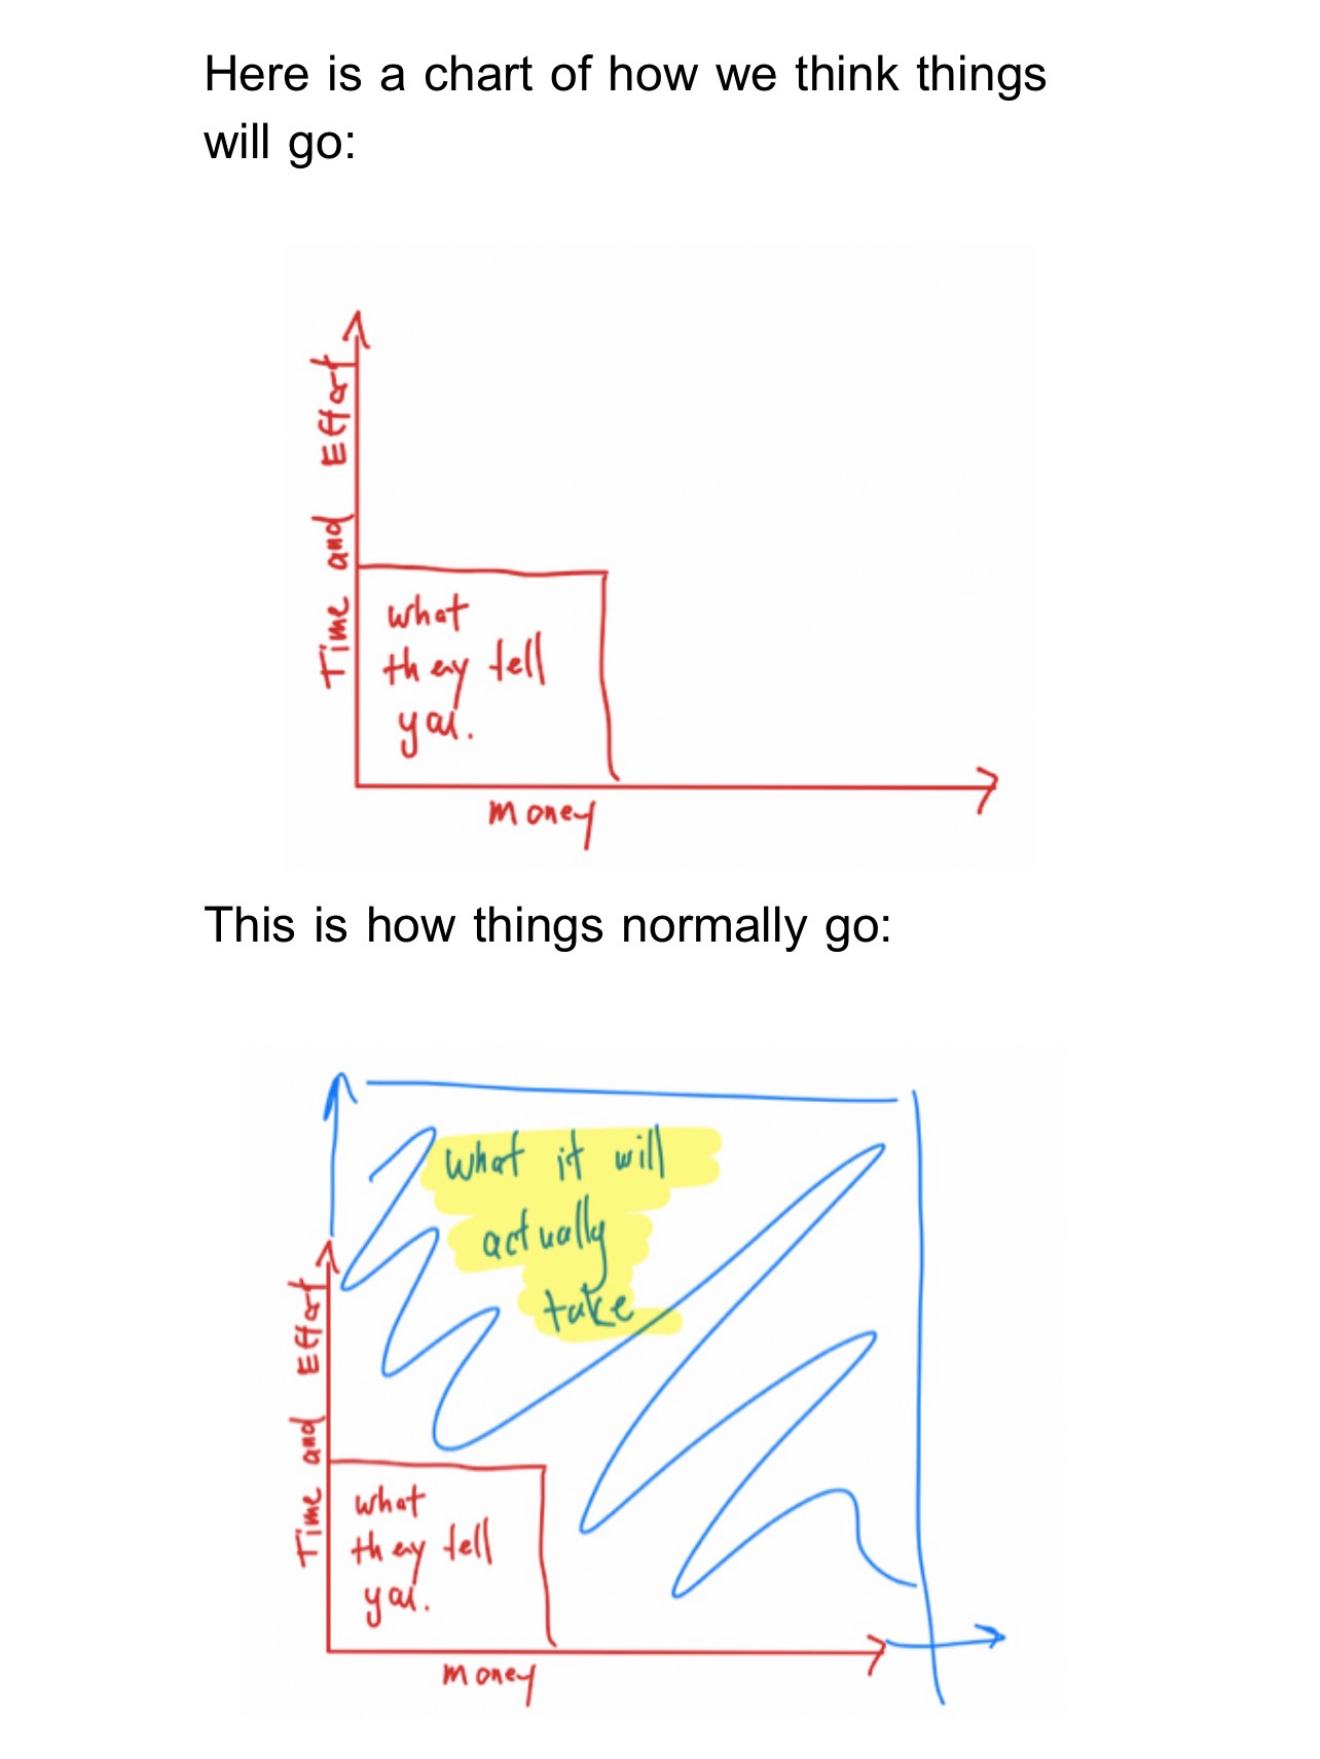 Here is a chart of how we think things
will go:
Time and Effort
what
they tell
you.
money
This is how things normally go:
what it will
actually
take
Time and Effort
what
they tell
you.
money